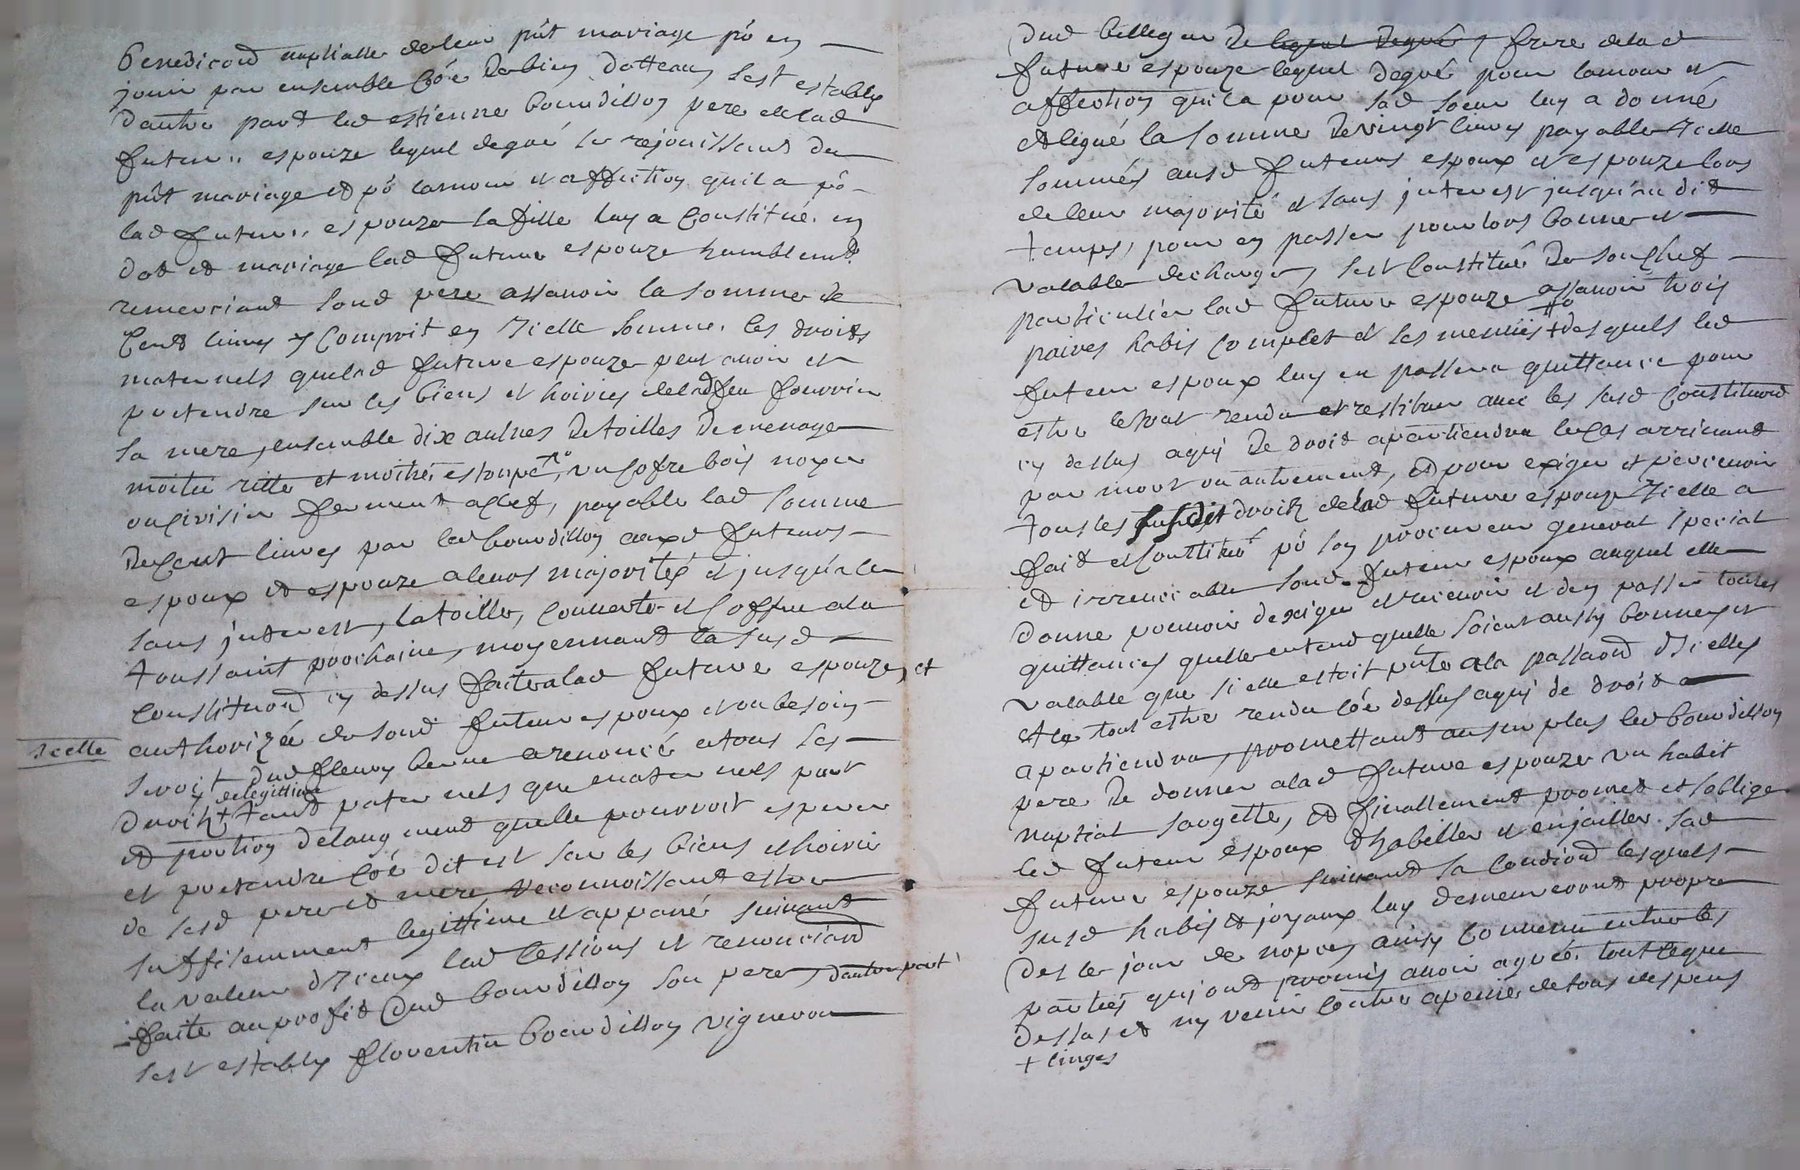 benediction nuptialle de leur pût mariage pô en
jouir par ensemble côe de bien dotteaux, sest estably
dautre part led estienne bourdillon pere de lad
future espouze lequel de gré se rejouissant du
pût mariage et pô lamour et affection quil a pô
lad future espouze sa fille luy a constitué en
dot et mariage lad future espouze humblemt
remerciant sond pere assavoir la somme de
cent livres y comprit en icelle somme les droits
maternels que lad future espouze peut avoir et
pretendre sur les biens et hoiries de lad feu
sa mere, ensemble dix aulnes de toilles de menage
moitié ritte et moitié estoupe, un cofre bois noyer
ou cirisier fermant a clef, payable lad somme
de cent livres par led bourdillon auxd futurs
espoux et espouze a leurs majorités et jusqu'alor
sans interest, la toille, couverte et coffre a la
toussaint prochaine, moyennant la susd
constitution cy dessus faite a lad future espouze, et
icelle
authorizée de sond futeur espoux et en besoin
seroit dud fleury a renoncé a tous ses
de legittime
droitz + tant paternels que maternels part
et portion delaug ment quelle pourroit esperer
et pretendre côe dit est sur les biens et hoirie
de sesd pere et mere, reconnoissant estre
suffisemment legittime et appané suivant
la valeur d'iceux lad cessions et renonciaon
faite au profit dud bourdillon son pere, dautre part
sest estably florentin bourdillon vigneron
dud bellegar de lequel degré, frere de lad
future espouze lequel degré pour lamour et
affection quil a pour sad soeur luy a donné
et legué la somme de vingt livres payable icelle
sommes ausd futeurs espoux et espouze lors
de leur majorité et sans interest jusqu'au dit
temps, pour en passer pour lors bonne et
valable decharge, sest constitué de son chef
particulier lad future espouze assavoir trois
paires habis complet et ses menus + desquels led
futeur espoux luy en passera quittance pour
estre le tout rendu et restituer avec les susd constitutions
cy dessus a qui de droit apartiendra le cas arrivant
par mort ou autrement, et pour exiger et percevoir
tous les susdit droitz de lad future espouze icelle a
fait et constitué pô son procureur general special
et irrevocable sond futeur espoux auquel elle
donne pouvoir dexiger et recevoir et den passer toutes
quittances quelle entend quelle soient aussy bonnes et
valable que si elle estoit pûte a la passaon d'icelles
et le tout estre rendu côe dessus a qui de droit
apartiendra, promettant au surplus led bourdillon
pere de donner a lad future espouze un habit
nuptial sargette, et finallement promet et soblige
led futeur espoux dhabiller et enjailler sad
future espouze suivant sa condiond lesquels
susd habis et joyaux luy demeureront propre
des le jour de nopces ainsy convenu entre les
parties qui ont promis avoir agreé tout ceque
dessus et ny venir contre a peine de tous despens
+ linges